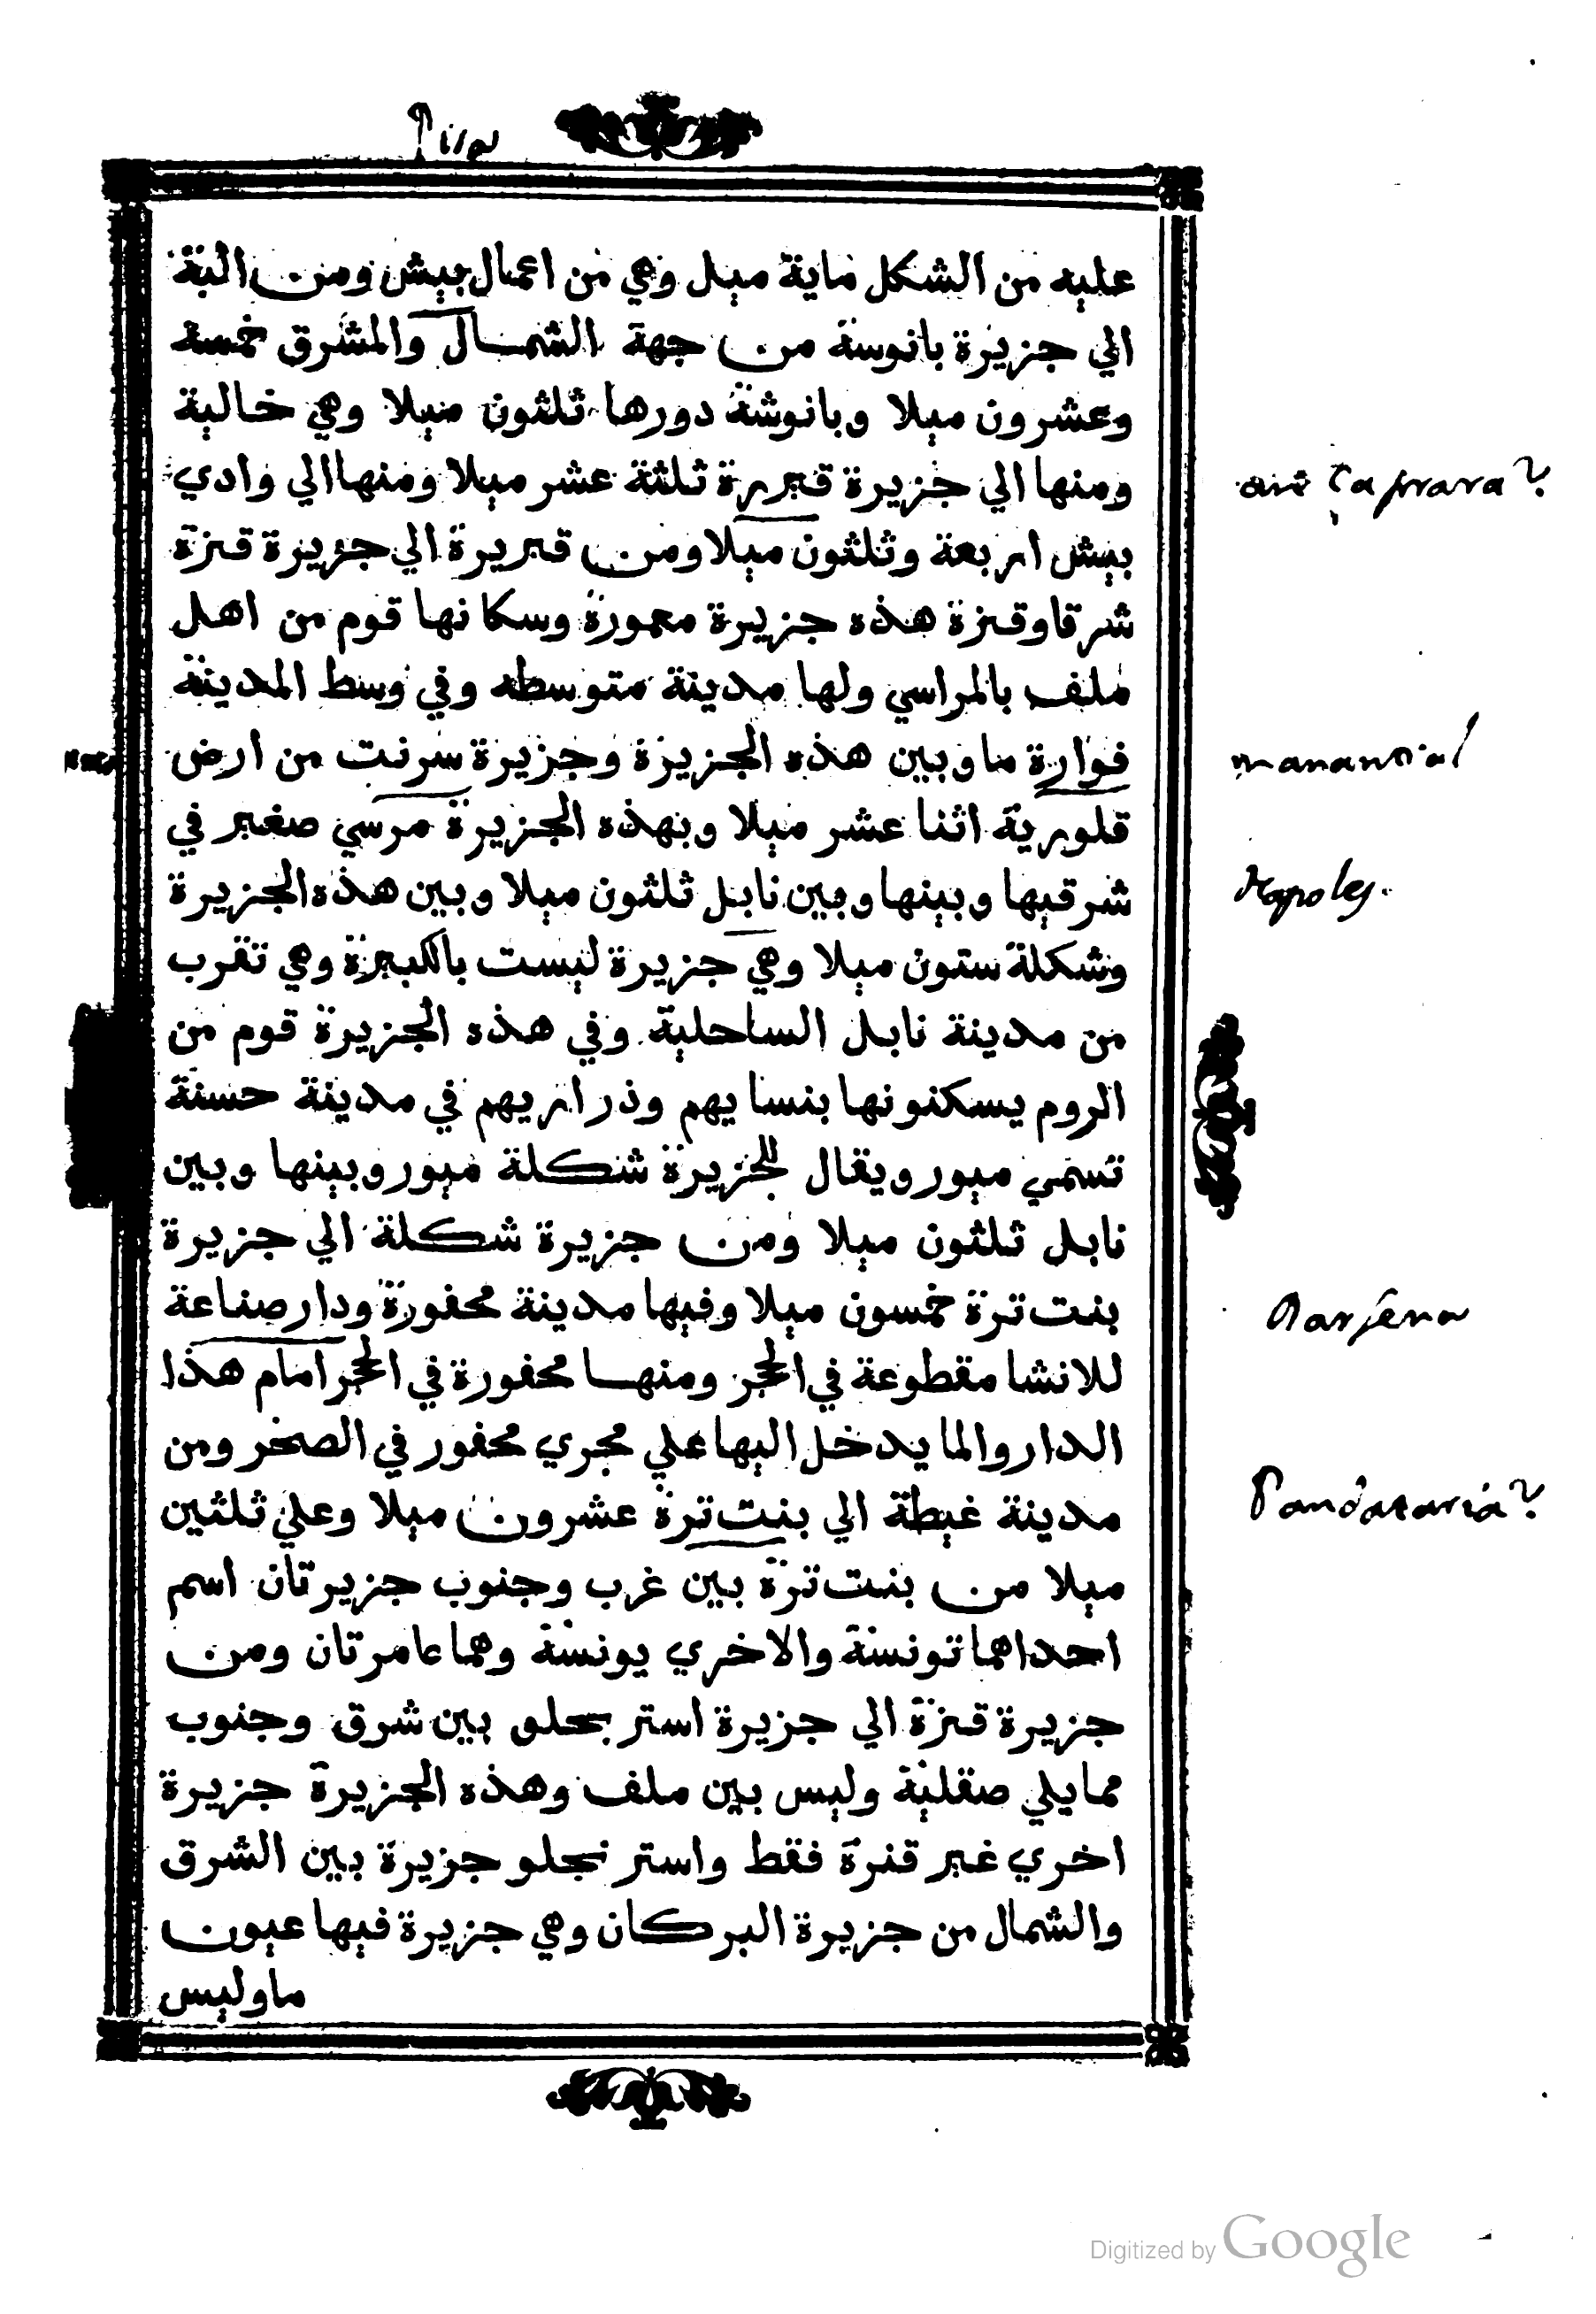 عليه من الشكل ماية ميل وهي من اعمال بيش ومن البة
الي جزيرة بانوسة من جهة الشمال والمشرق خمسة
وعشرون ميلا وبانوشة دورها ثلثون ميلا وهي خالية
ومنها الي جزيرة قبررة ثلثة عشر ميلا ومنها الي وادي
بيش اربعة وثلثون ميلا ومن قبريرة الي جزيرة قنزة
شرقا وقنزة هذه جزيرة معمورة وسكانها قوم من اهل
ملف بالمراسي ولها مدينة متوسطه وفي وسط المدينة
فوارة ما وبين هذه الجزيرة وجزيرة سرنت من ارض
قلورية اثنا عشر ميلا وبهذه الجزيرة مرسي صغير في
شرقيها وبينها وبين نابل ثلثون ميلا وبين هذه الجزيرة
وشكلة ستون ميلا وهي جزيرة ليست بالكبيرة وهي تقرب
من مدينة نابل الساحلية وفي هذه الجزيرة قوم من
الروم يسكنونها بنسايهم وذراريهم في مدينة حسنة
تسمي ميور ويقال للجزيرة شكلة ميور وبينها وبين
نابل ثلثون ميلا ومن جزيرة شكلة الي جزيرة
بنت ترة خمسون ميلا وفيها مدينة محفورة ودار صناعة
للانشا مقطوعة في الحجر ومنها محفورة في الحجر امام هذا
الدار والما يدخل اليها علي مجري محفور في الصخر ومن
مدينة غيطة الي بنت ترة عشرون ميلا وعلي ثلثين
ميلا من بنت ترة بين غرب وجنوب جزيرتان اسم
احداهما تونسة والاخري يونسة وهما عامرتان ومن
جزيرة قنزة الي جزيرة استر بحلو بين شرق وجنوب
مما يلي صقلية وليس بين ملف وهذه الجزيرة جزيرة
اخري غير قنرة فقط واستر نجلو جزيرة بين الشرق
والشمال من جزيرة البركان وهي جزيرة فيها عيون
ما وليس
Caprara?
manantial
Napoles.
Darsena
Pandataria?
Digitized by Google